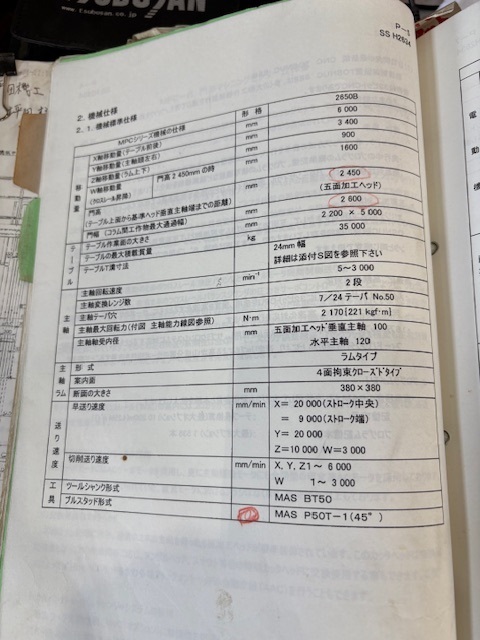 www.tsubosan.co.jp
P-5
SS H2634
2. 機械仕様
2. 1. 機械標準仕様
MPCシリーズ機械の仕様 形 格 2650B
移動量 X軸移動量(テーブル前後) mm 6 000
Y軸移動量(主軸頭左右) mm 3 400
Z軸移動量(ラム上下) mm 900
W軸移動量 (クロスレール昇降) 門高2 450mmの時 mm 1600
門高 (テーブル上面から基準ヘッド垂直主軸端までの距離) mm 2 450
(五面加工ヘッド)
門幅 (コラム間工作物最大通過幅) mm 2 600
テーブル テーブル作業面の大きさ mm 2 200 × 5 000
テーブルの最大積載質量 kg 35 000
テーブルT溝寸法 24mm幅
詳細は添付S図を参照下さい
主軸 主軸回転速度 min⁻¹ 5~3 000
主軸変換レンジ数 2段
主軸テーパ穴 7/24テーパ No.50
主軸最大回転力(付図 主軸能力線図参照) N・m 2 170{221 kgf・m}
主軸軸受内径 mm 五面加工ヘッド垂直主軸 100
水平主軸 120
主軸ラム 形 式 ラムタイプ
案内面 4面拘束クローズドタイプ
断面の大きさ mm 380×380
送り速度 早送り速度 mm/min X= 20 000(ストローク中央)
= 9 000(ストローク端)
Y= 20 000
Z=10 000 W=3 000
切削送り速度 mm/min X, Y, Z1~ 6 000
W 1~ 3 000
工具 ツールシャンク形式 MAS BT50
プルスタッド形式 MAS P50T-1(45°)
電動機